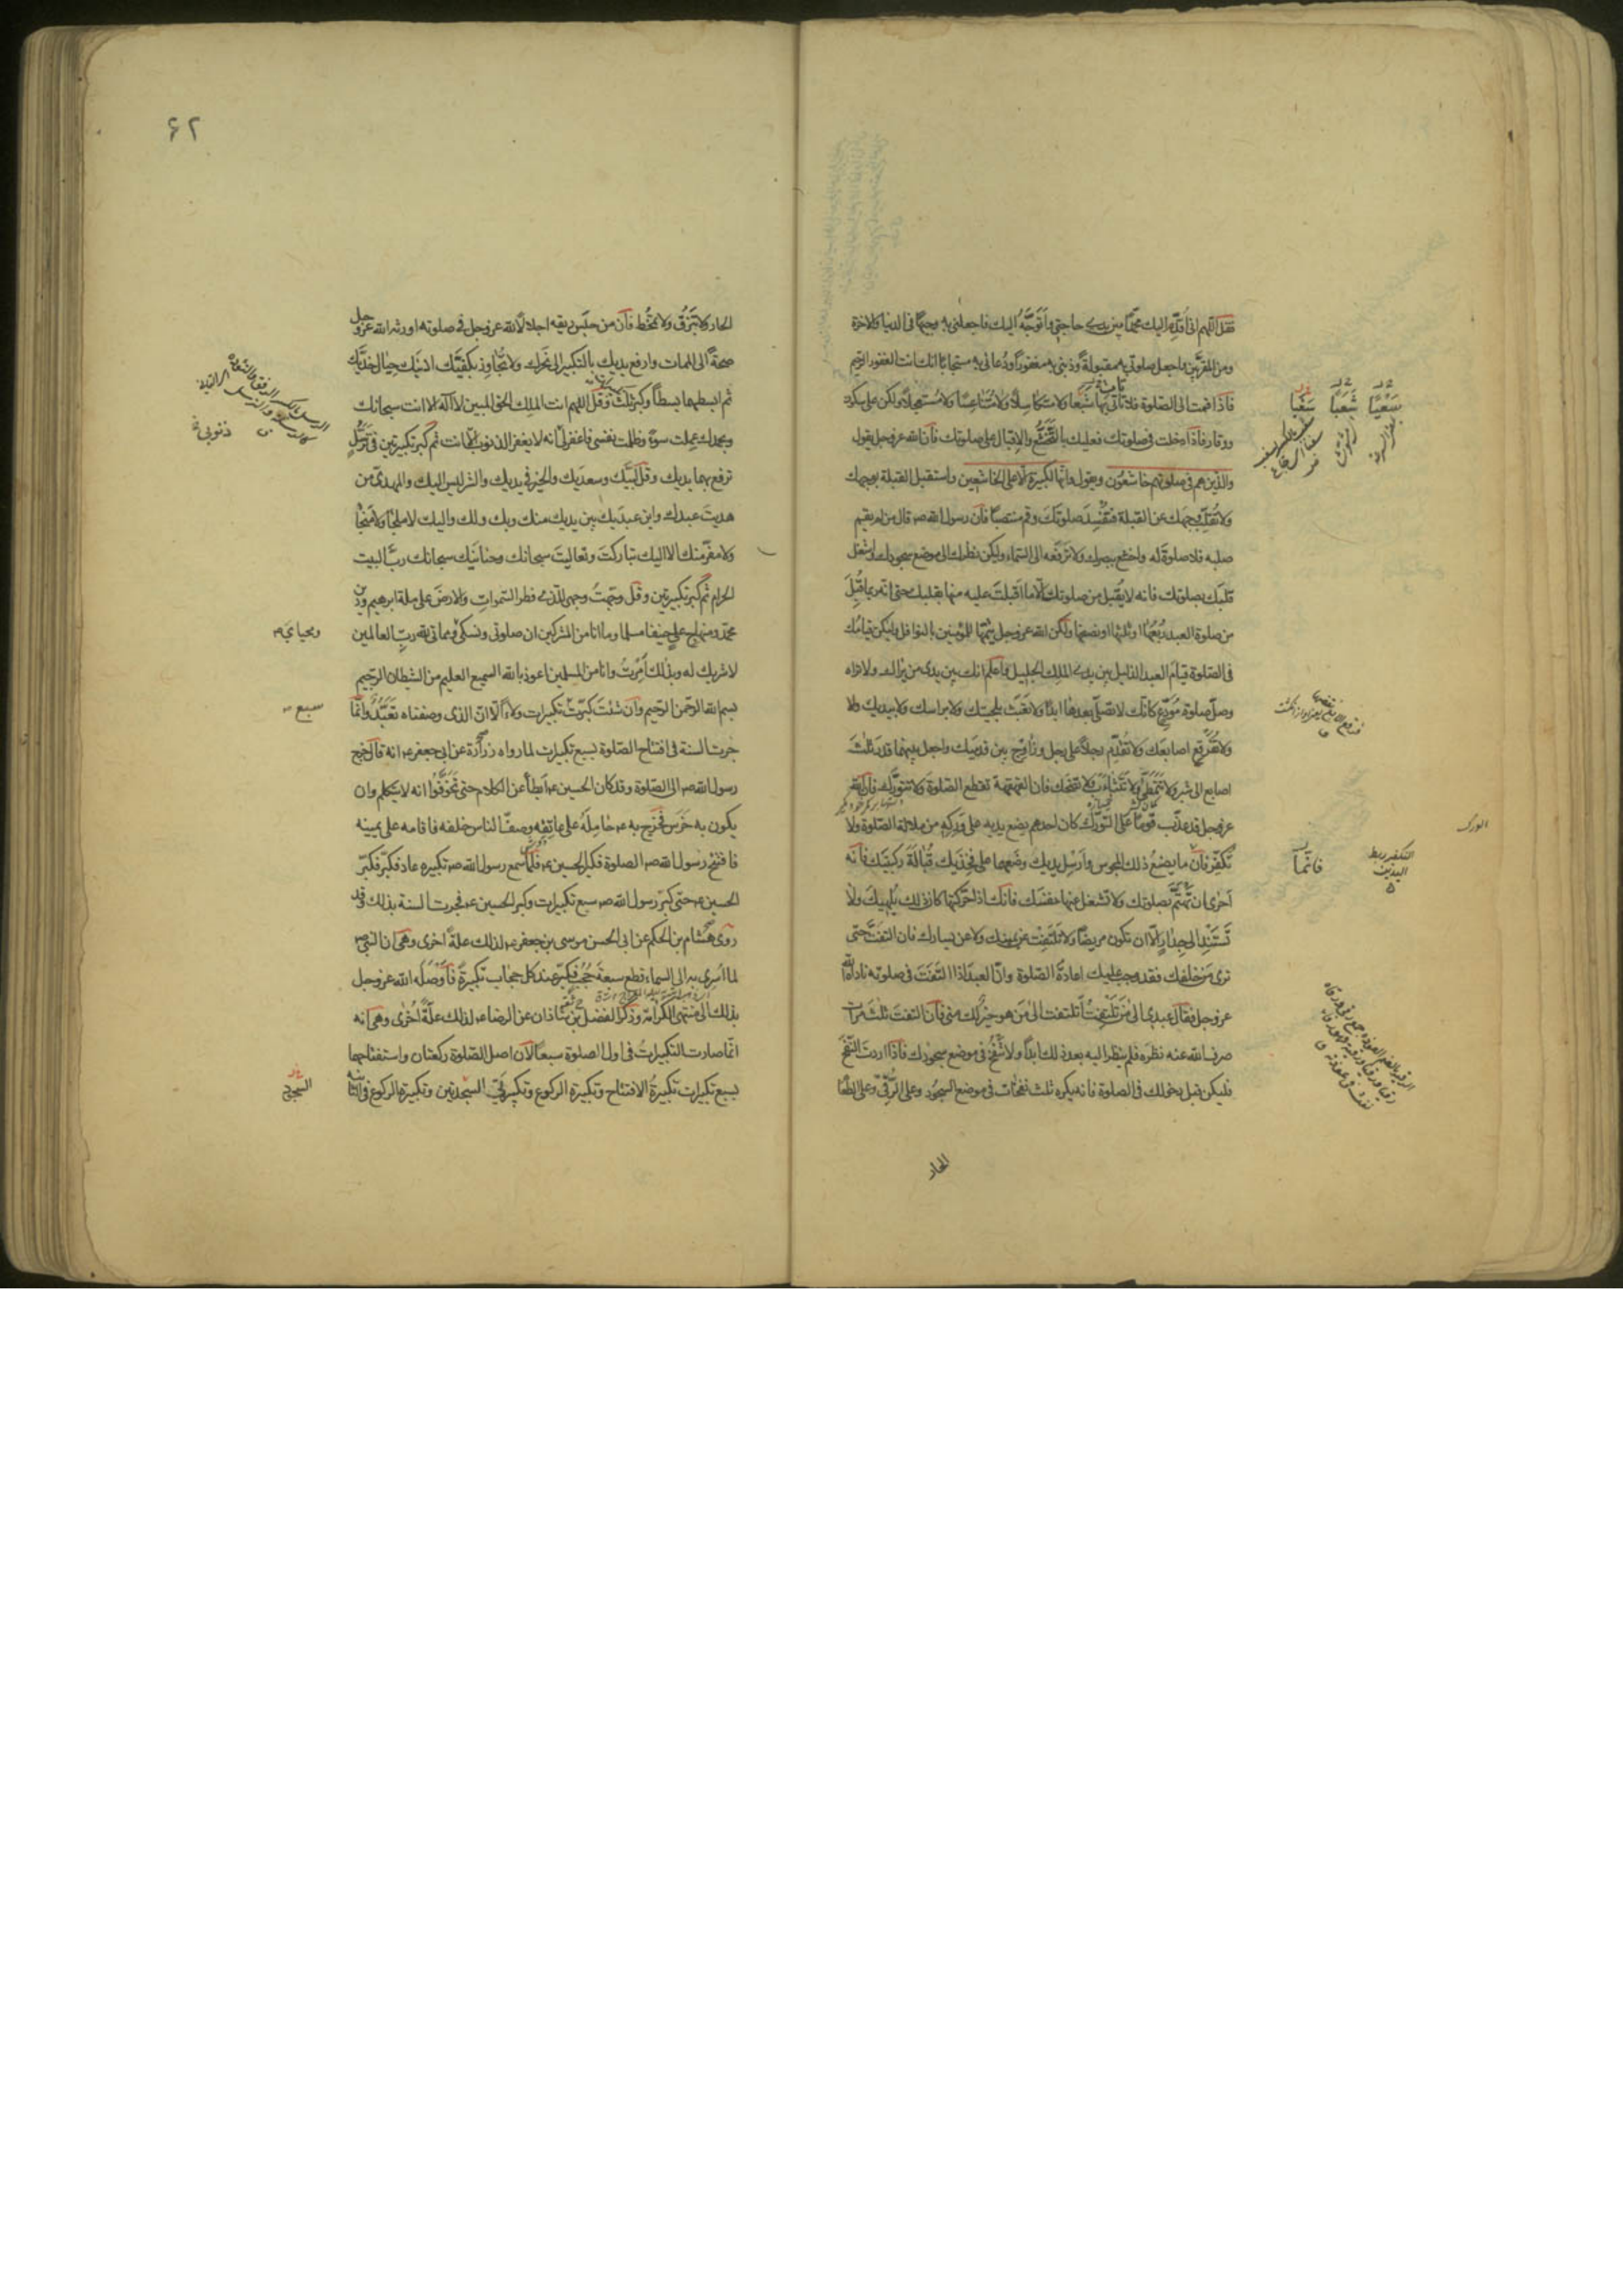 فقل اللهم انى اُقدّم اليك محمّدا بين يدى حاجتى واَتَوَجَّهُ اليك فاجعلنى به وجيهًا فى الدنيا والاخرة
ومن المقرّبين واجعل صلوتى به مقبولةً وذنبى به مغفورًا ودُعائى به مستجابًا انك انت الغفور الرحيم
فاذا قمت الى الصّلوة فلا تأتى بها شَبِعًا ولا متكاسِلًا ولا مُتَناعِسًا ولا مُستعجلًا ولكن على سكون
ووقار فاذا دخلت فى صلوتك فعليك بالتَّخَشُّع والاِقبال على صلوتك فانّ الله عزوجل يقول
والذين هم فى صلوتهم خاشعُون ويقول وانّها لكبيرة الّا على الخاشعين واستقبل القبلة بوجهك
ولا تُقلّب وجهك عن القبلة فتَفْسُدَ صلوتك وقم منتصبًا فانّ رسول الله صم قال من لم يقيم
صلبه فلا صلوة له واخشع ببصرك ولا تَرْفَعه الى السّماء وليكن نظرك الى موضع سجودك واشغل
قلبك بصلوتك فانه لا يُقبل من صلوتك الّا ما اَقبلتَ عليه منها بقلبك حتى انه ربما قُبِلَ
من صلوة العبد رُبعُها او ثلثها او نصفها ولكن الله عزوجل يُتمّها للمؤمنين بالنوافل وليكن قيامُك
فى الصّلوة قيامَ العبد الذليل بين يدى الملِك الجليل واعلم انك بين يدى من يراك ولا تراه
وصلّ صلوة مُوَدِّع كانّك لا تصلّى بعدها ابدًا ولا تَعْبَث بلحيتك ولا براسك ولا بيديك ولا
ولا تُفَرقِع اصابعَك ولا تُقدِّم رجلًا على رجل وزاوِج بين قدميك واجعل بينهما قدرَ ثلث
اصابع الى شبر ولا تَتَمَطَّى ولا تَتَثاءَب ولا تضحك فان القهقهة تقطع الصّلوة ولا تتورّك فان الله
عزوجل قد عذّب قومًا على التّورّك كان احدهم يضع يديه على وَرِكيه من ملالة الصّلوة ولا
تكَفّر فانّ ما يصنعُ ذلك المجوس واَرْسِل يديك وضَعهما على فخذيك قُبالةَ ركبتيك فانّه
اَحرى ان تهتَمَّ بصلوتك ولا تشغل عنها نفسَك فانك اذا حرّكتها كان ذلك يُلهيك ولا
تَستَنِد الى جِدار الّا ان تكون مريضًا ولا تَلتَفِت عن يمينك ولا عن يسارك فان التفتَّ حتى
ترى مَن خلفك فقد وجب عليك اعادةُ الصّلوة وانّ العبد اذا التَفَتَ فى صلوته ناداه الله
عزوجل فقال عبدى الى مَن تَلْتَفِتُ اَتلتفت الى مَن هو خير لك منى فان التفت ثلث مرات
صرف الله عنه نظره فلم ينظر اليه بعد ذلك ابدًا ولا تَنْفُخْ فى موضع سجودك فاذا اردت النّفخ
فليكن قبل دخولك فى الصلوة فانه يكره ثلث نفخات فى موضع السجُود وعلى الرُّقى وعلى الطعام
الحار
سَغْيًا
شَعَبًا
سَغَبًا
التكفير ربط
اليدين
فانّما
الورك
۶۲
الحار ولا تَبْزُق ولا تمخّط فانّ من حبَس ريقه اجلالًا لله عزوجل فى صلوته اورثه الله عزوجل
صحةً الى الممات وارفع يديك بالتكبير الى نحرك ولا تُجاوِز بكفّيك اذنيك حيال خدّيك
ثم ابسطهما بسطًا وكبر ثلث وقل اللهم انت الملك الحق المبين لا اله الا انت سبحانك
وبحمدك عملت سوءًا وظلمت نفسى فاغفرلى انه لا يغفر الذنوب الّا انت ثم كبر تكبيرتين فى ترسُّلٍ
ترفع بهما يديك وقل لَبَّيك وسعدَيك والخير فى يديك والشر ليس اليك والمهدىّ من
هديتَ عبدك وابن عبدَيك بين يديك منك وبك ولك واليك لا ملجأ ولا مَنجأ
ولا مفرّ منك الا اليك تباركتَ وتعاليتَ سبحانك وحنانَيك سبحانك ربَّ البيت
الحرام ثم كبر تكبيرتين وقل وجّهتُ وجهى للذى فطر السّموات والارضَ على ملة ابرهيم ودين
محمّد ومنهاج على حنيفا مسلما وما انا من المشركين ان صلوتى ونسكى ومماتى لله ربّ العالمين
لا شريك له وبذلك اُمِرْتُ وانا من المسلمين اعوذ بالله السميع العليم من الشيطان الرّجيم
بسم الله الرّحمن الرّحيم وان شئتَ كبّرت تكبيرات ولاءً الّا انّ الذى وصفناه تعَبُّدٌ وانّما
جرت السنة فى افتتاح الصّلوة بسبع تكبيرات لما رواه زرارة عن ابى جعفر ع انه قال خرج
رسول الله صم الى الصّلوة وقد كان الحسين ع اَبطأ عن الكلام حتى تَخَوَّفُوا انه لا يتكلم وان
يكون به خَرَس فخرج به ع حامِلَهُ على عاتِقِه وصفّ الناس خلفه فاقامه على يمينه
فافتتح رسول الله صم الصلوة فكبر الحسين ع فلمّا سمع رسول الله صم تكبيره عاد فكبّر فكبّر
الحسين ع حتى كبّر رسول الله صم سبع تكبيرات وكبر الحسين ع فجرت السنة بذلك وقد
روى هشام بن الحكم عن ابى الحسن موسى بن جعفر ع لذلك علةً اخرى وهى ان النبى صم
لما اُسرى به الى السماء قطع سبعةَ حُجُب فكبّر عند كل حجاب تكبيرةً فاَوْصَلَه الله عزوجل
بذلك الى منتهى الكرامة وذكر الفضل بن شاذان عن الرضا ع لذلك علّةً اُخرى وهى انه
انّما صارت التكبيرات فى اول الصلوة سبعًا لانّ اصل الصّلوة ركعتان واستفتاحهما
بسبع تكبيرات تكبيرةُ الافتتاح وتكبيرة الركوع وتكبيرتَى السجدتين وتكبيرة الركوع فى الثانية
ذنوبى
ومحياى
سبع
السجود